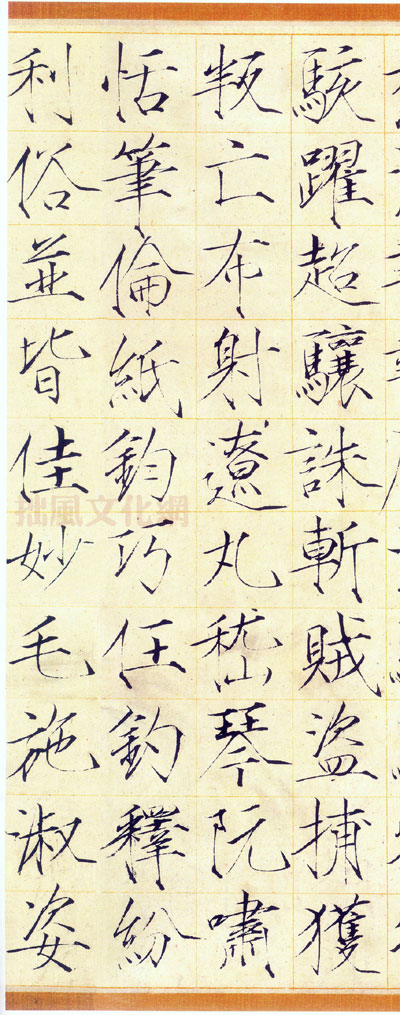 駭躍超驤誅斬賊盜捕獲
叛亡布射遼丸嵇琴阮嘯
恬筆倫紙鈞巧任釣釋紛
利俗並皆佳妙毛施淑姿
拙風文化網